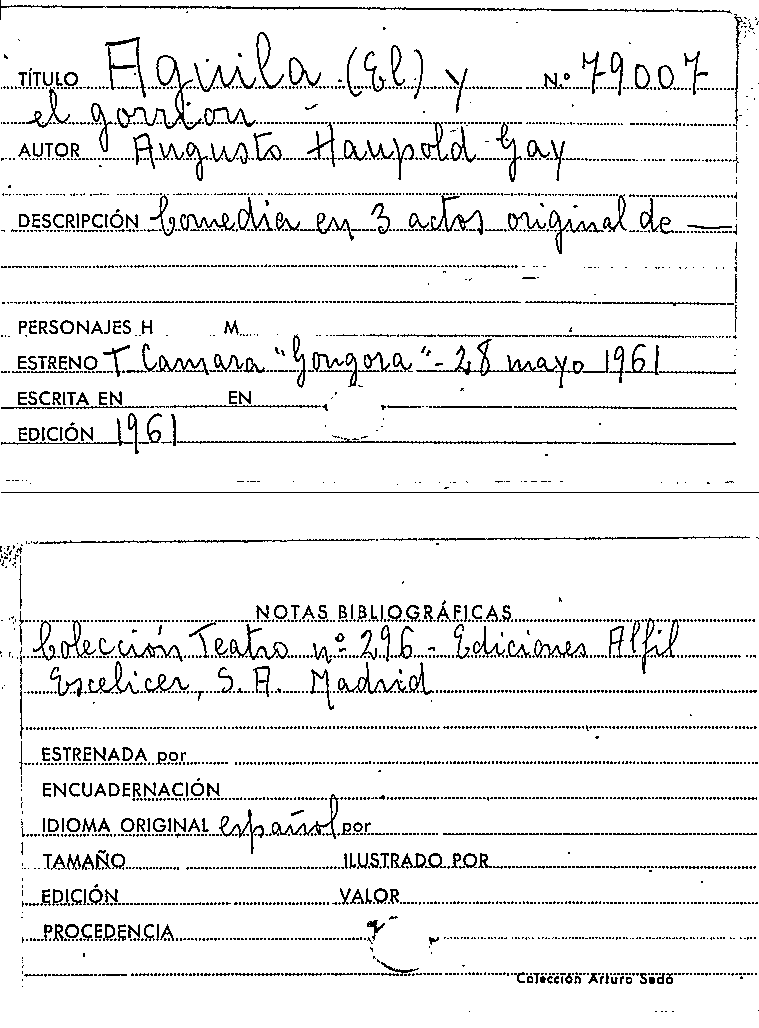 TÍTULO Aguila (El) y N.º 79007
el gorrion
AUTOR Augusto Haupold Gay
DESCRIPCIÓN Comedia en 3 actos original de —
PERSONAJES H M
ESTRENO T. Camara "Gongora" - 28 mayo 1961
ESCRITA EN EN
EDICIÓN 1961
NOTAS BIBLIOGRÁFICAS
Colección Teatro nº 296 - Ediciones Alfil
Escelicer, S. A. Madrid
ESTRENADA por
ENCUADERNACIÓN
IDIOMA ORIGINAL español por
TAMAÑO ILUSTRADO POR
EDICIÓN VALOR
PROCEDENCIA
Colección Arturo Sedó